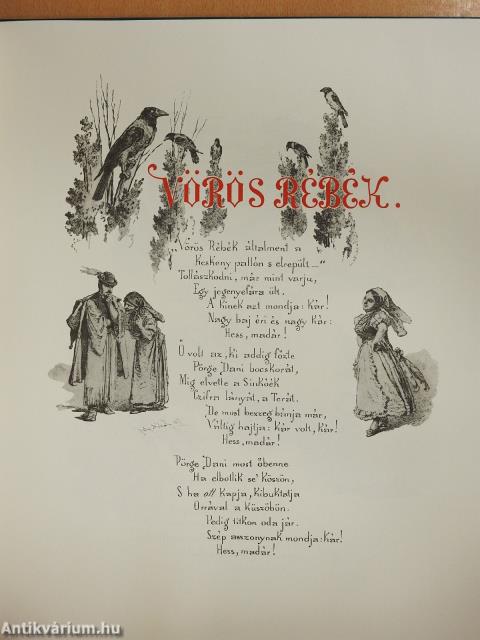 VÖRÖS RÉBÉK.
„Vörös Rébék általment a
Keskeny pallón s elrepült —“
Tollászkodni, már mint varju,
Egy jegenyefára ült.
A kinek azt mondja: kár!
Nagy baj éri és nagy kár:
Hess, madár!
Ő volt az, ki addig főzte
Pörge Dani bocskorát,
Mig elvette a Sinkóék
Czifra lányát, a Terát.
De most bezzeg bánja már,
Váltig hajtja: kár volt, kár!
Hess, madár!
Pörge Dani most őbenne
Ha elbotlik se' köszön,
S ha ott kapja, kibuktatja
Orrával a küszöbön.
Pedig titkon oda jár.
Szép asszonynak mondja: kár!
Hess, madár!
Antikvárium.hu